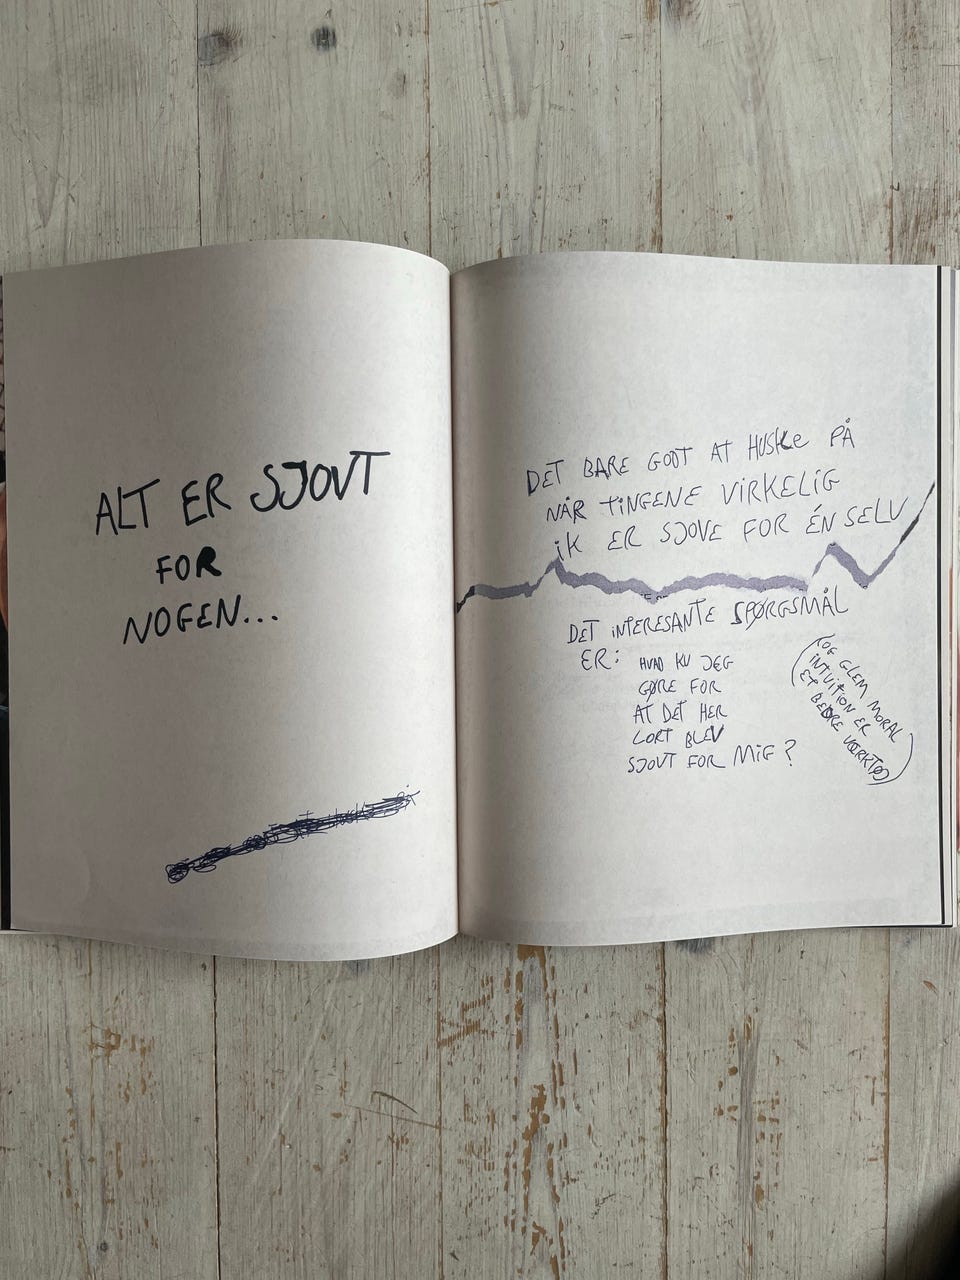 ALT ER SJOVT
FOR
NOGEN...
DET BARE GODT AT HUSKe PÅ
NÅR TiNGENE ViRKELiG
iK ER SJOVE FOR ÉN SELV
DET iNTERESANTE SPØRGSMÅL
ER:
HVAD KU JEG
GØRE FOR
AT DET HER
LORT BLEV
SJOVT FOR MiG?
(OG GLEM MORAL
iNTUiTiON ER
ET BEDRE VÆRKTØJ)